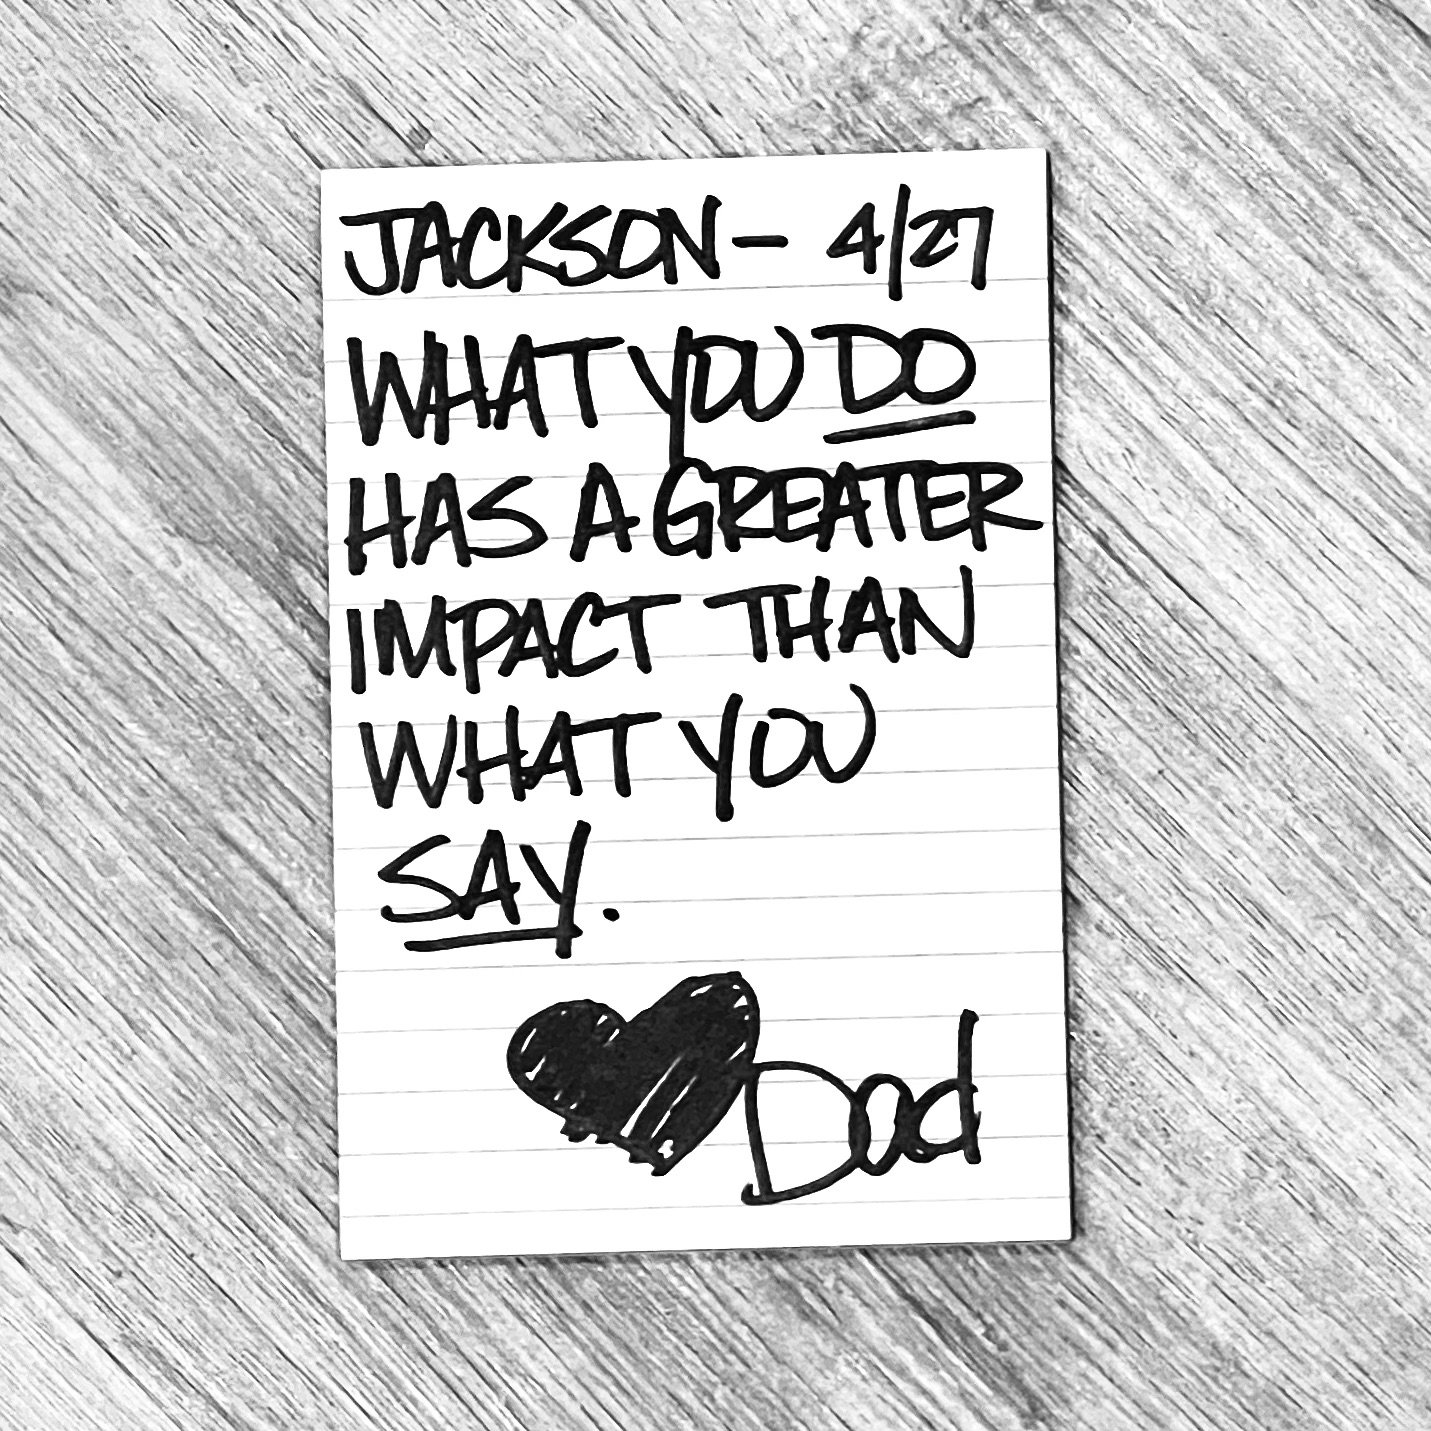 JACKSON- 4/27
WHAT YOU DO
HAS A GREATER
IMPACT THAN
WHAT YOU
SAY.
Dad